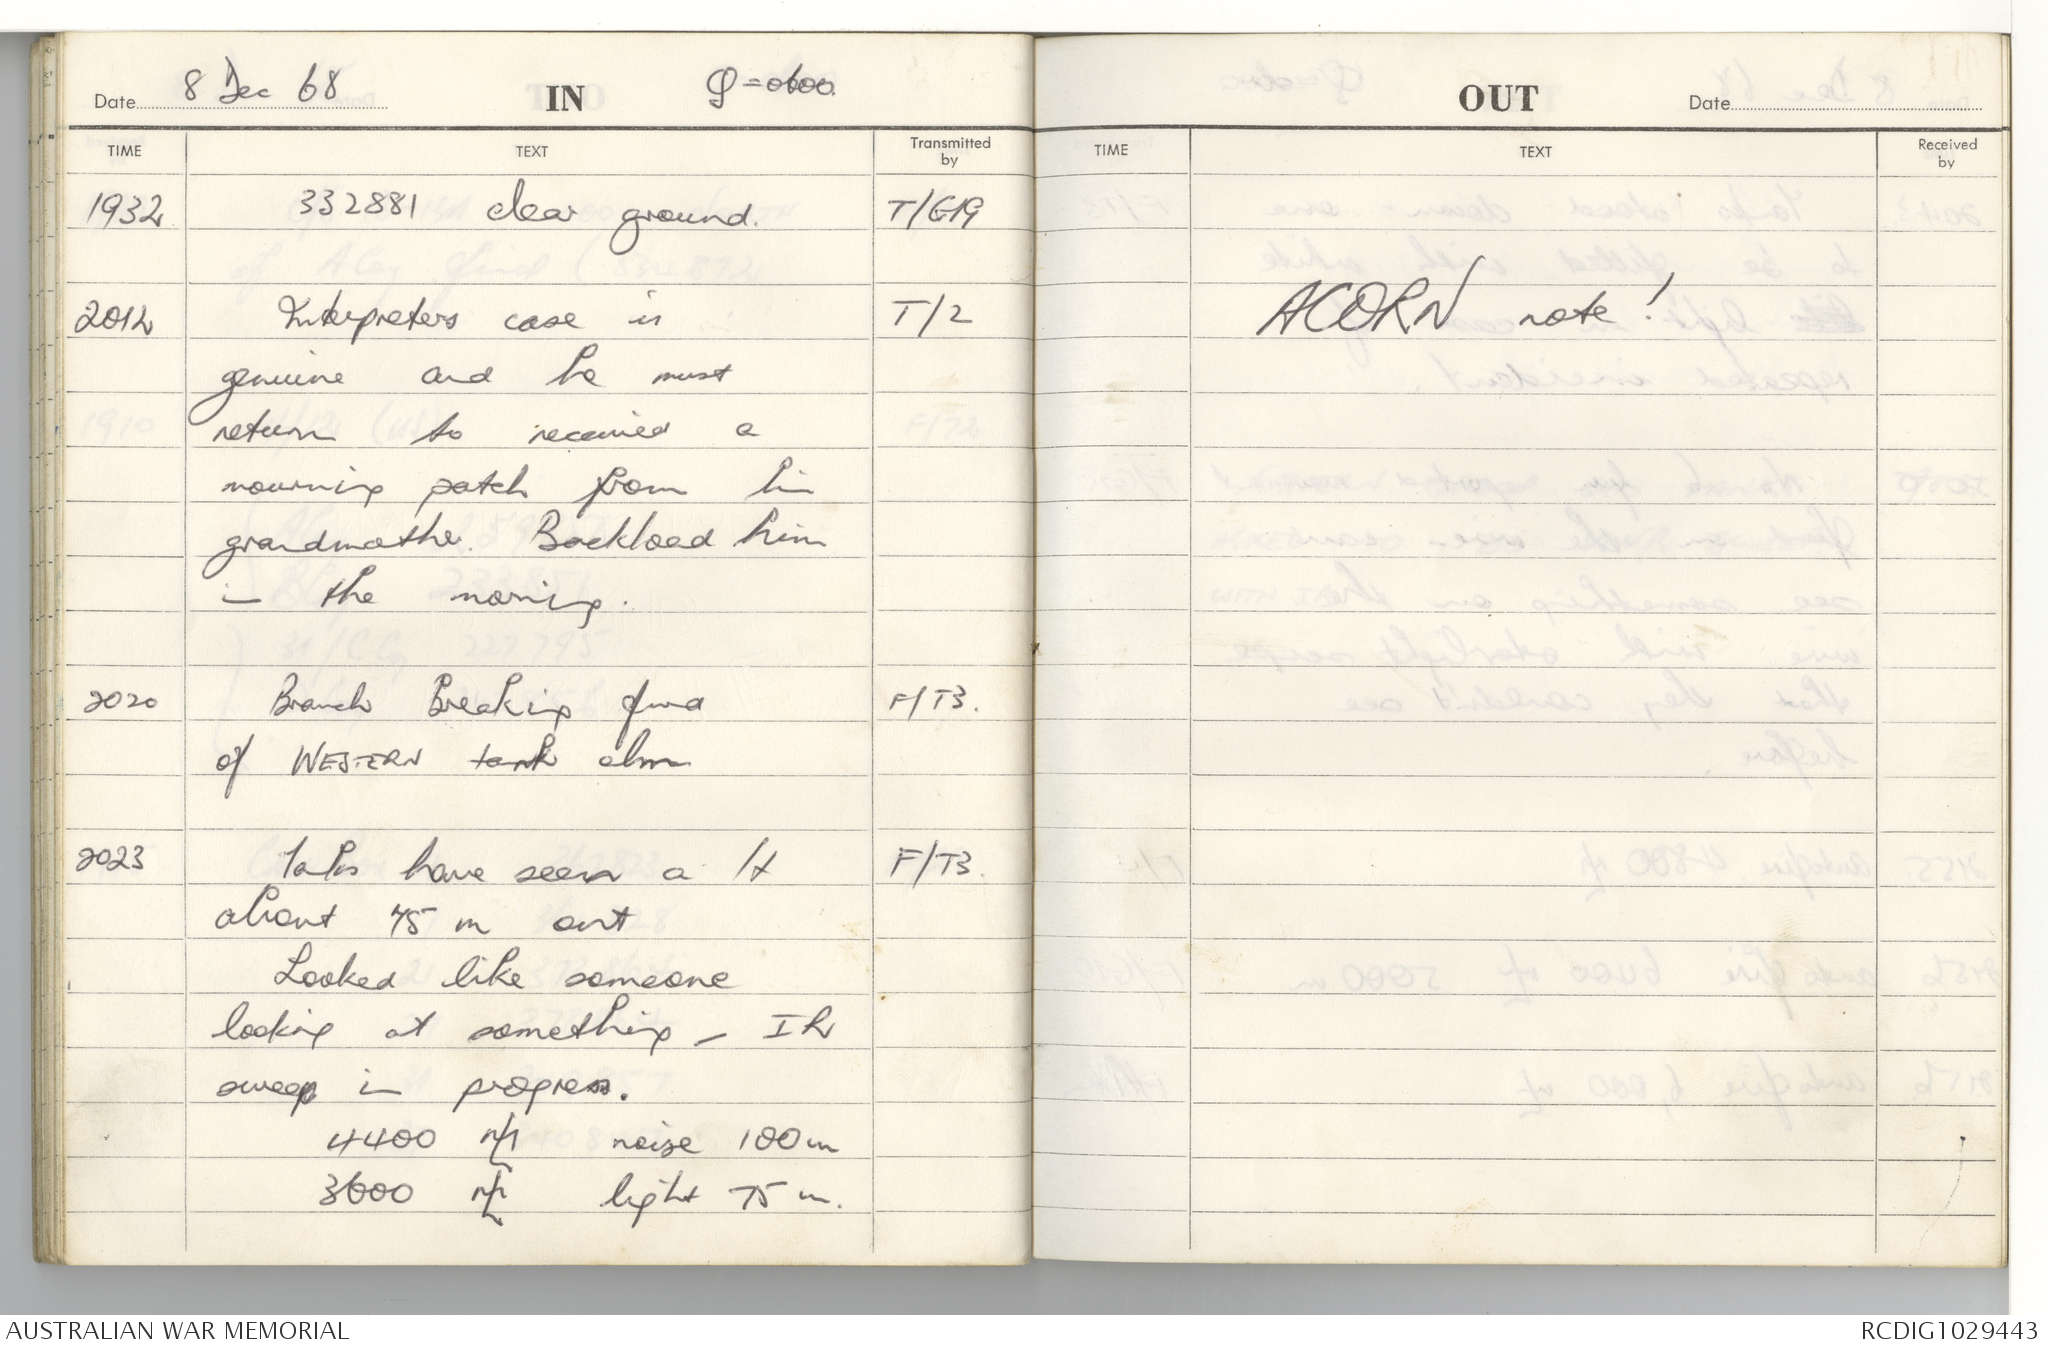 Date 8 Dec 68 IN φ = 0600
TIME TEXT Transmitted by
1932 332881 clear ground. T/G19
2012 Interpreters case is T/2
genuine and he must
return to received a
mourning patch from his
grandmother. Backload him
in the morning.
2020 Branch Breaking fwd F/T3.
of WESTERN tank
2023 have seen a lt F/T3.
about 75 m out
Looked like someone
looking at something - IR
sweep in progress.
4400 noise 100 m
3600 light 75 m.
OUT Date
TIME TEXT Received by
ACORN note!
AUSTRALIAN WAR MEMORIAL
RCDIG1029443